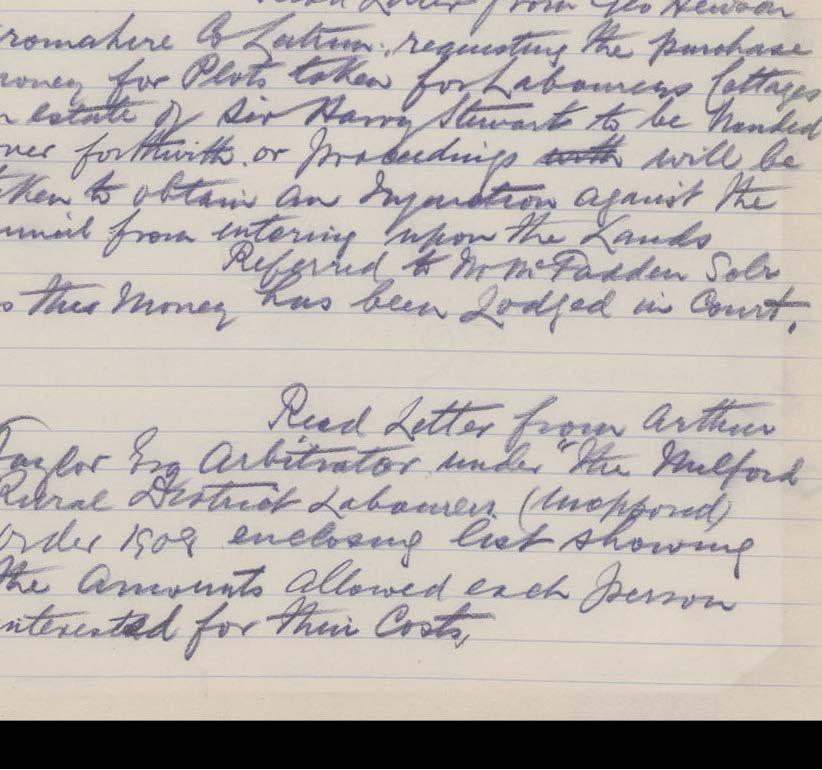 Read Letter from Geo Hewson
romahire Co Leitrim. requesting the purchase
money for Plots taken for Labourers Cottages
n estate of Sir Harry Stewart to be handed
over forthwith. or proceedings with will be
taken to obtain an Injunction against the
uncil from entering upon the Lands
Referred to Mr McFadden Solr
s this Money has been Lodged in Court.
Read Letter from Arthur
Taylor Esq Arbitrator under "The Milford
Rural District Labourers (Unopposed)
Order 1909 enclosing list showing
the amounts allowed each person
interested for their Costs,